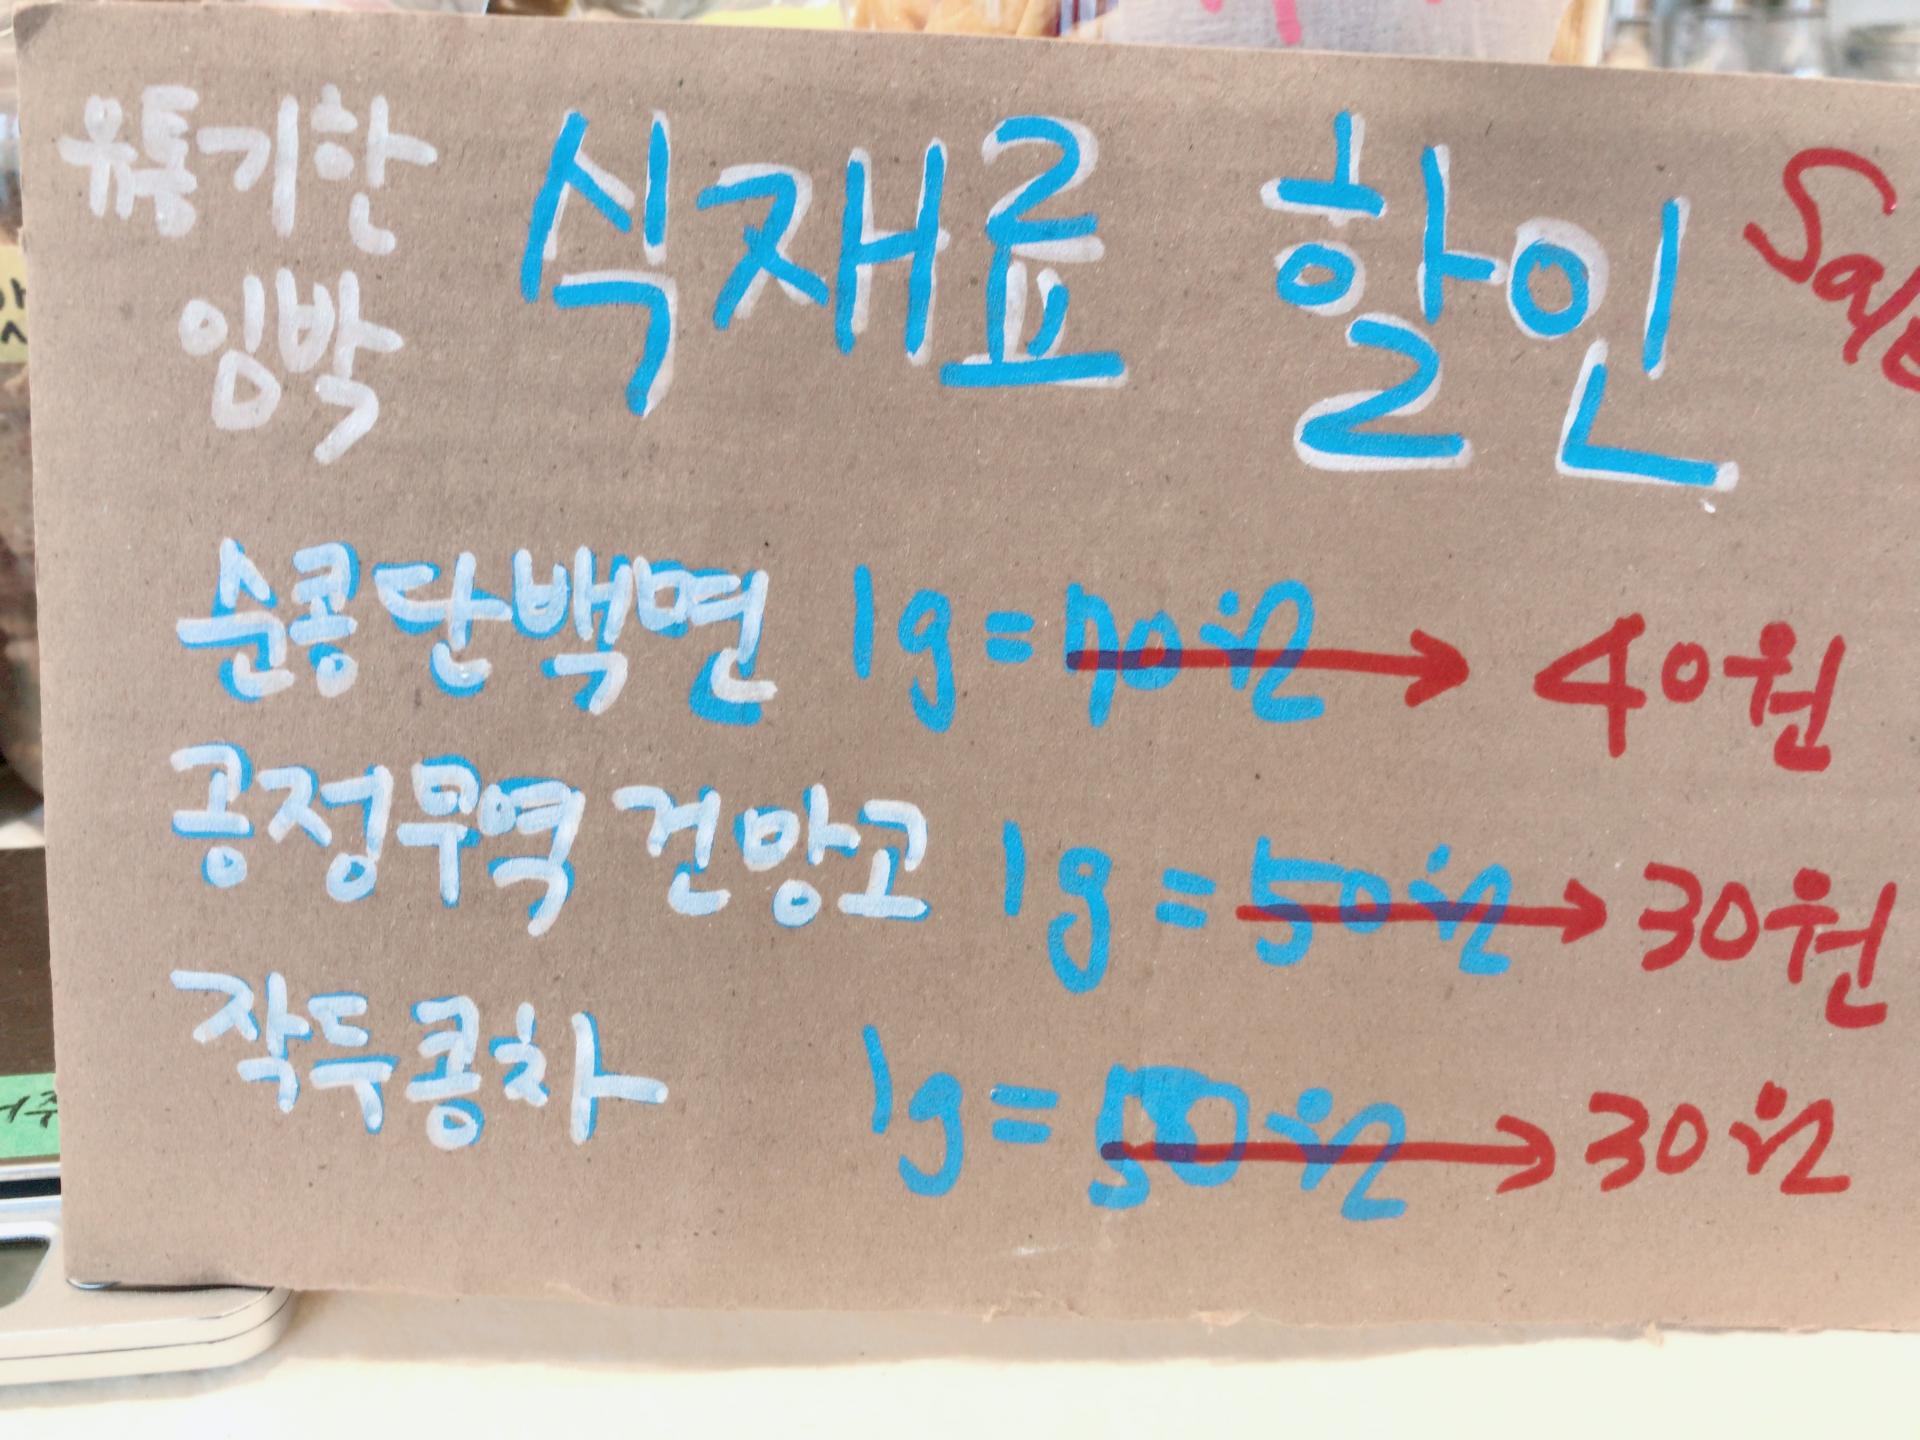 유통기한
임박
식재료 할인
Sale
순콩단백면 1g = 70원 → 40원
공정무역 건망고 1g = 50원 → 30원
작두콩차 1g = 50원 → 30원